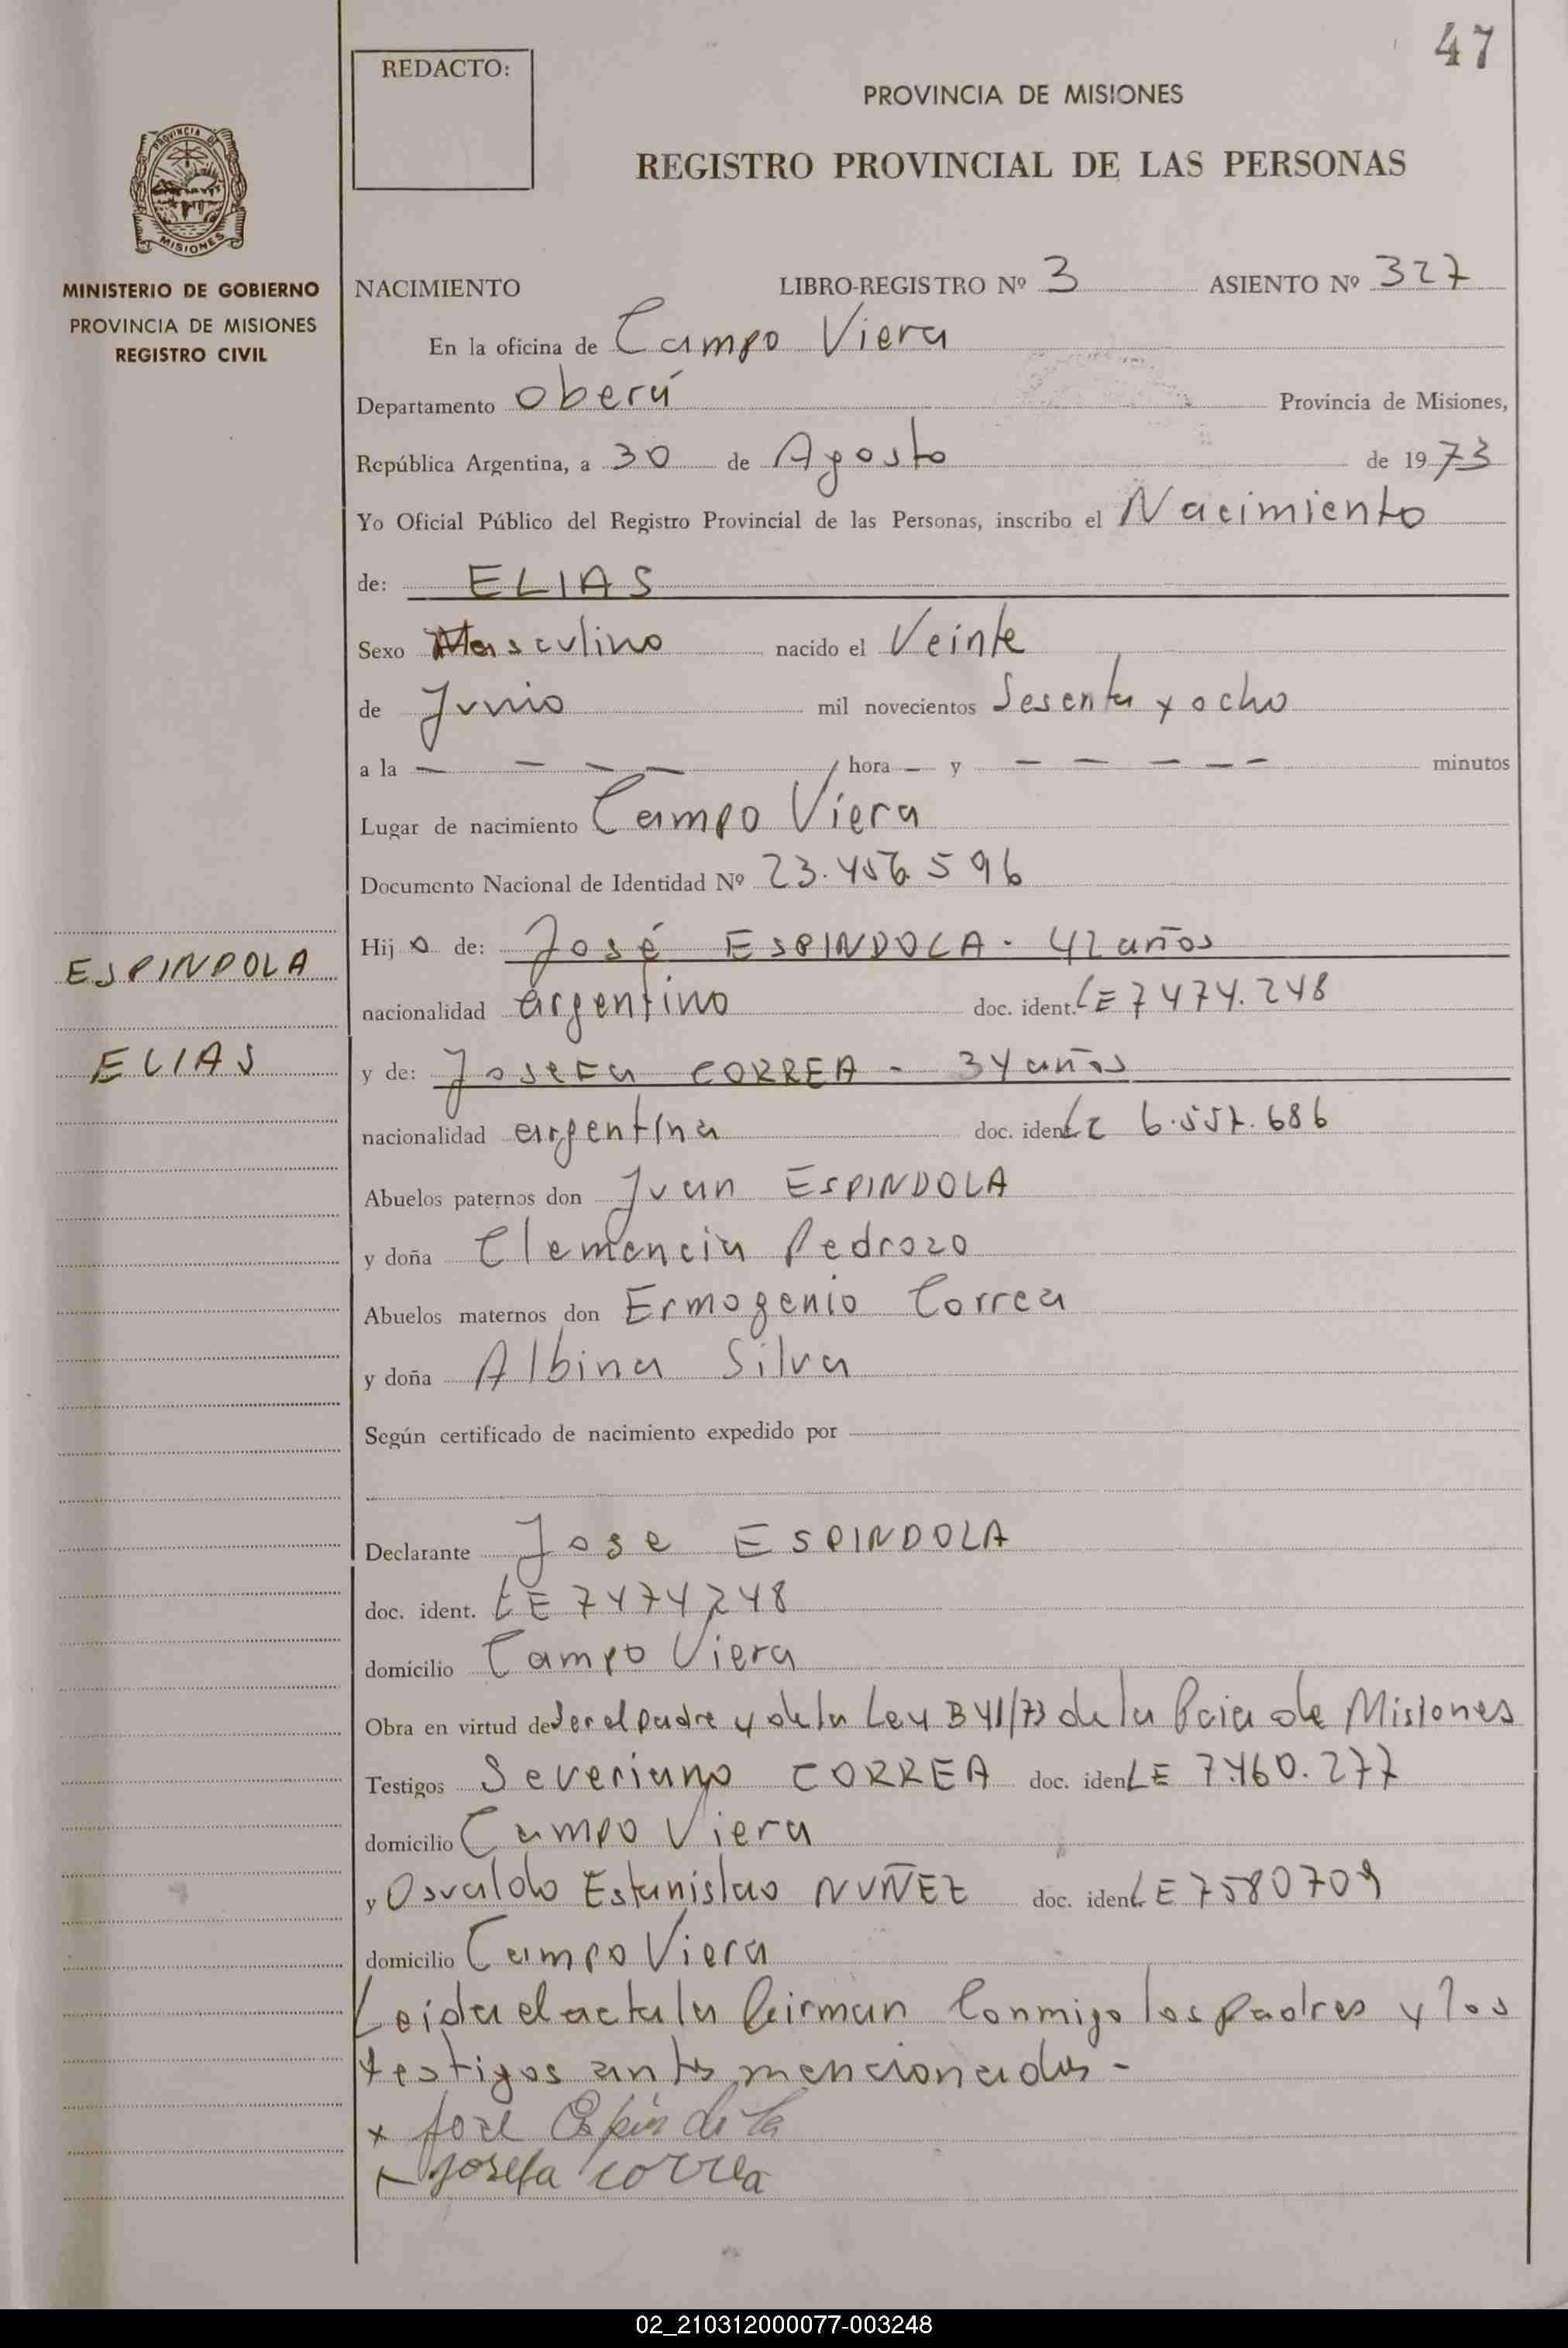 47
REDACTO:
PROVINCIA DE MISIONES
REGISTRO PROVINCIAL DE LAS PERSONAS
PROVINCIA DE
MISIONES
MINISTERIO DE GOBIERNO
PROVINCIA DE MISIONES
REGISTRO CIVIL
NACIMIENTO LIBRO-REGISTRO Nº 3 ASIENTO Nº 327
En la oficina de Campo Viera
Departamento Oberá Provincia de Misiones,
República Argentina, a 30 de Agosto de 1973
Yo Oficial Público del Registro Provincial de las Personas, inscribo el Nacimiento
de: ELIAS
Sexo Masculino nacido el Veinte
de Junio mil novecientos Sesenta y ocho
a la — — — — hora — y — — — — — minutos
Lugar de nacimiento Campo Viera
Documento Nacional de Identidad Nº 23.456.596
Hijo de: José ESPINDOLA - 42 años
ESPINDOLA
nacionalidad argentino doc. ident. LE 7474.248
ELIAS
y de: Josefa CORREA - 34 años
nacionalidad argentina doc. ident. LC 6.557.686
Abuelos paternos don Juan ESPINDOLA
y doña Clemencia Pedrozo
Abuelos maternos don Ermogenio Correa
y doña Albina Silva
Según certificado de nacimiento expedido por
Declarante Jose ESPINDOLA
doc. ident. LE 7474248
domicilio Campo Viera
Obra en virtud de ser el padre y de la Ley B 41/73 de la Pcia de Misiones
Testigos Severiano CORREA doc. iden LE 7.460.277
domicilio Campo Viera
y Osvaldo Estanislao NUÑEZ doc. ident. LE 7580709
domicilio Campo Viera
Leida el acta la firman Conmigo los padres y los
testigos antes mencionados -
x Jose Espindola
x Josefa Correa
02_210312000077-003248